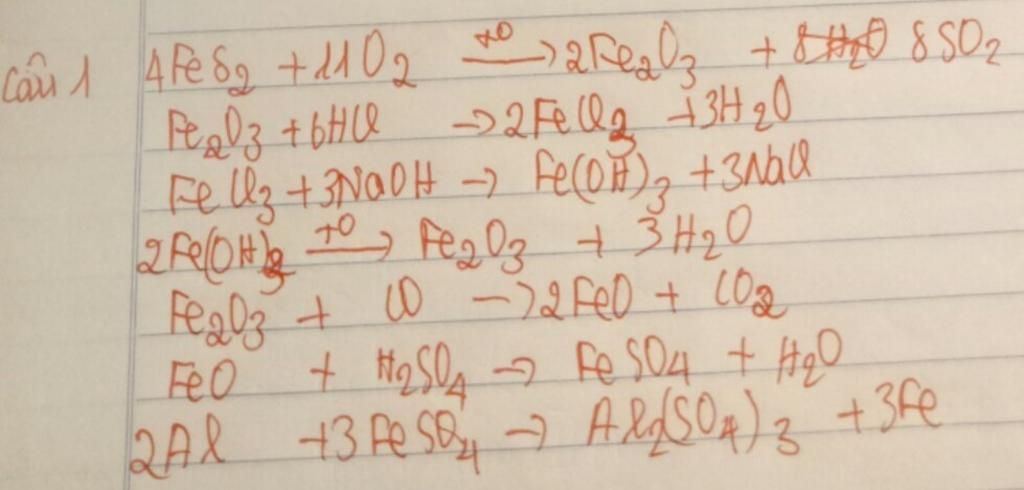 Câu 1 4FeS2 + 11O2 →(t°) 2Fe2O3 + 8SO2
Fe2O3 + 6HCl → 2FeCl3 + 3H2O
FeCl3 + 3NaOH → Fe(OH)3 + 3NaCl
2Fe(OH)3 →(t°) Fe2O3 + 3H2O
Fe2O3 + CO → 2FeO + CO2
FeO + H2SO4 → FeSO4 + H2O
2Al + 3FeSO4 → Al2(SO4)3 + 3Fe